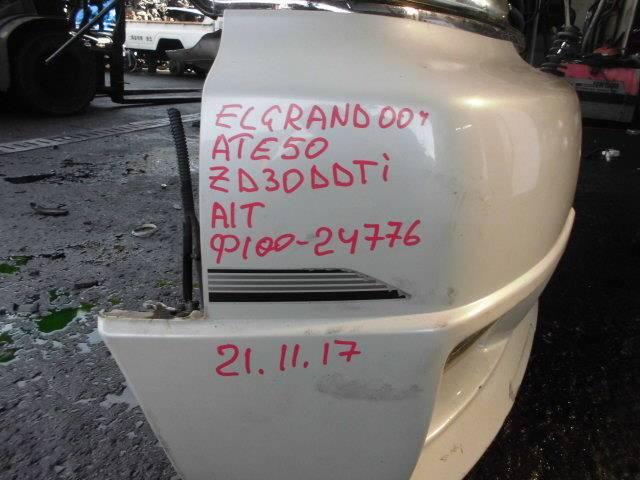 ELGRAND 00г
ATE50
ZD30DDTi
A/T
Ф100-24776
21.11.17